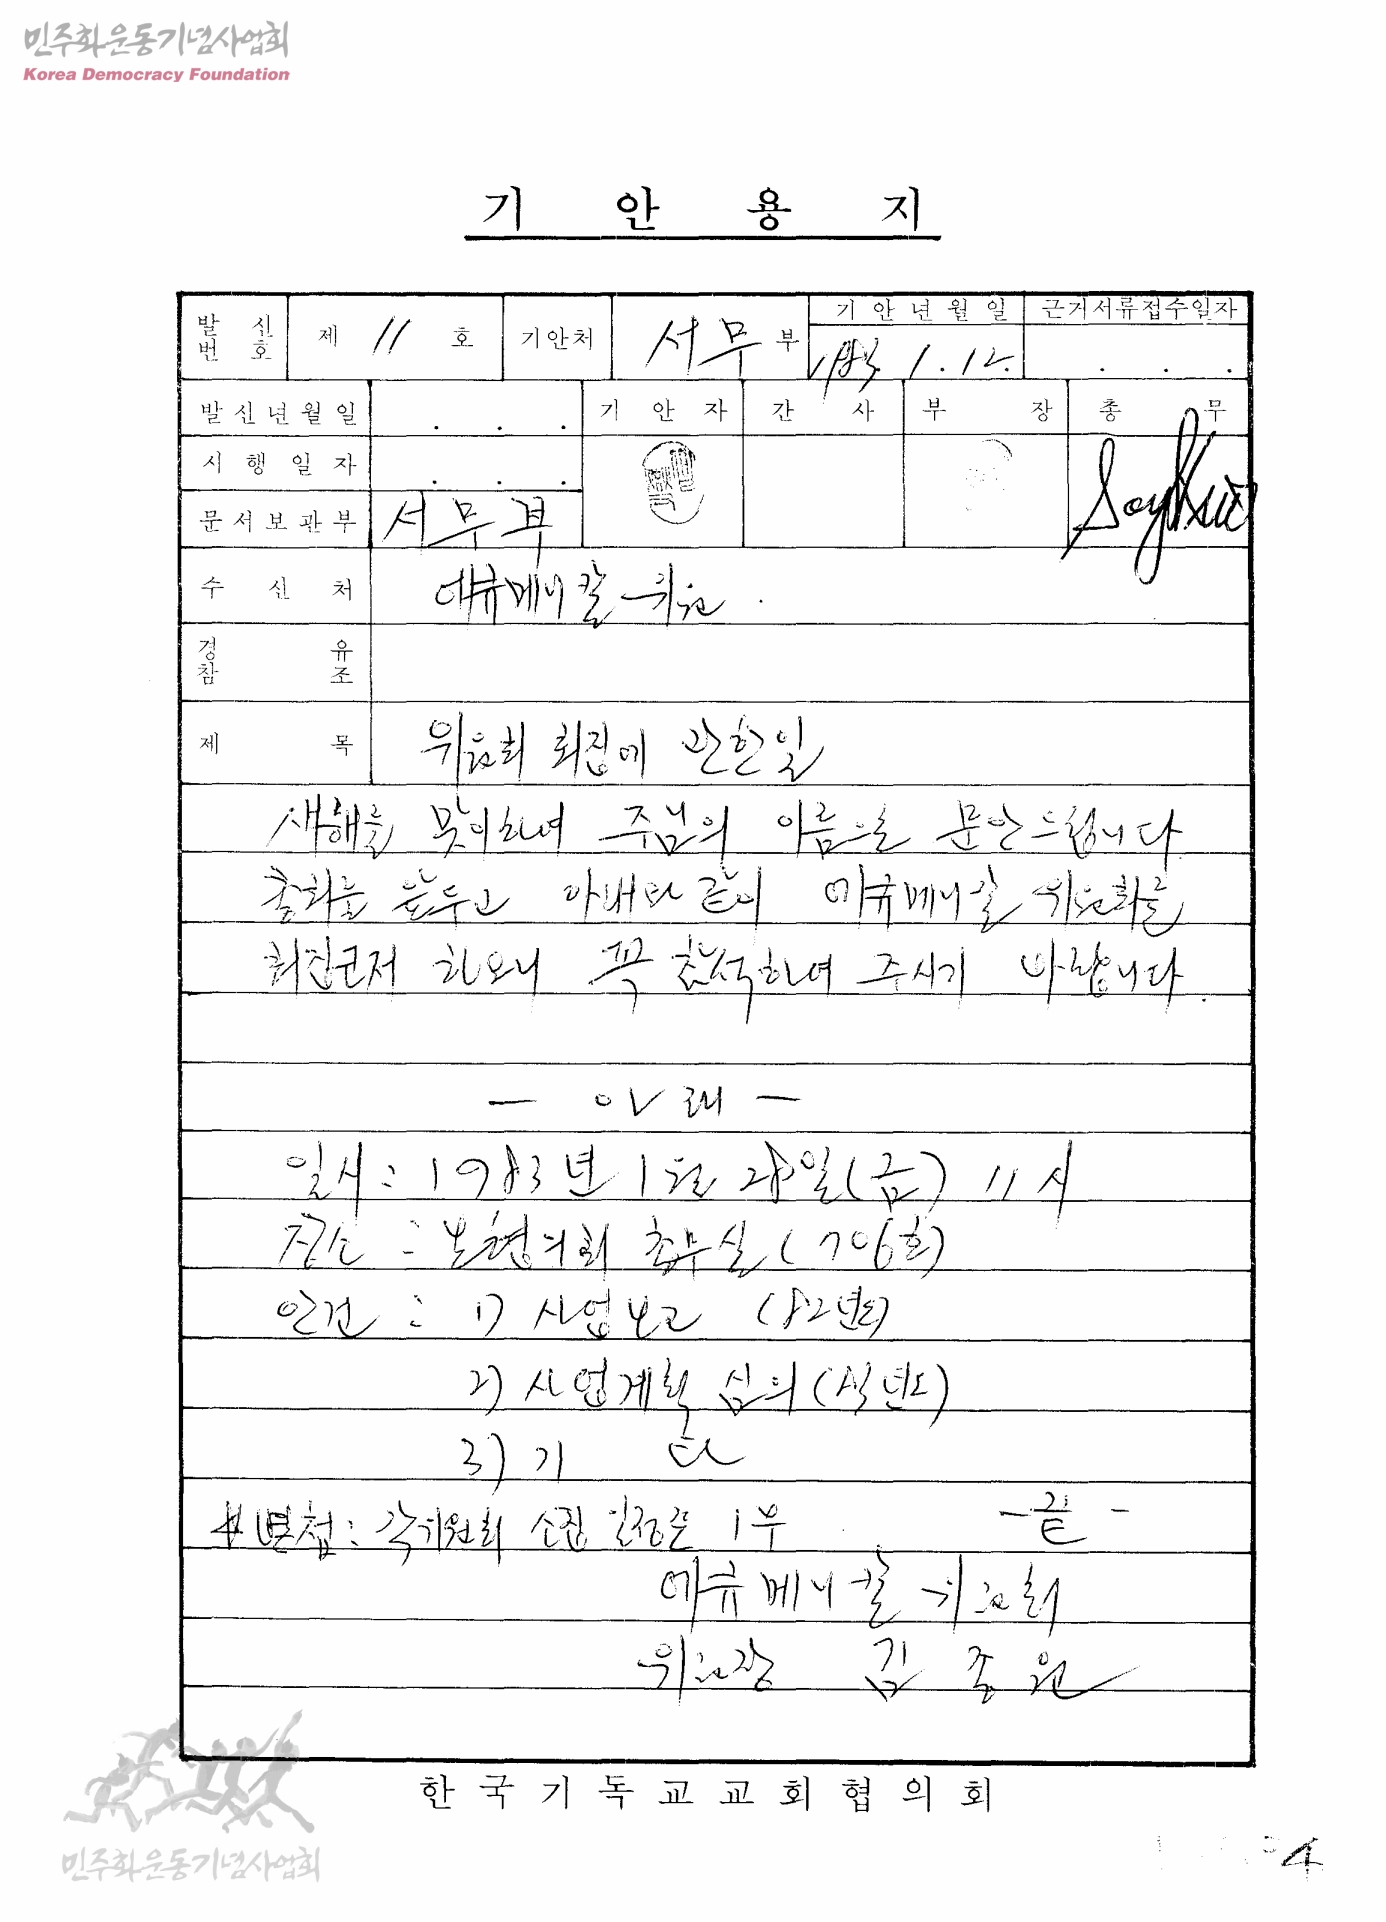 민주화운동기념사업회
Korea Democracy Foundation
기 안 용 지
발신번호 제 11 호 기안처 서무 부 기안년월일 1983. 1. 12. 근거서류접수일자 . . .
발신년월일 . . . 기 안 자 간 사 부 장 총 무
시행일자 . . .
문서보관부 서무부
수 신 처 에큐메니칼 위원.
경 유
참 조
제 목 위원회 회집에 관한일
새해를 맞이하여 주님의 이름으로 문안드립니다
총회를 앞두고 아래와 같이 에큐메니칼 위원회를
회집코저 하오니 꼭 참석하여 주시기 바랍니다.
- 아래 -
일시 : 1983년 1월 28일(금) 11시
장소 : 본협의회 총무실(706호)
안건 : 1) 사업보고 (82년도)
2) 사업계획 심의(83년도)
3) 기 타
#별첩: 각위원회 소집 일정표 1부 -끝-
에큐메니칼 위원회
위원장 김 종 원
한국기독교교회협의회
민주화운동기념사업회
4